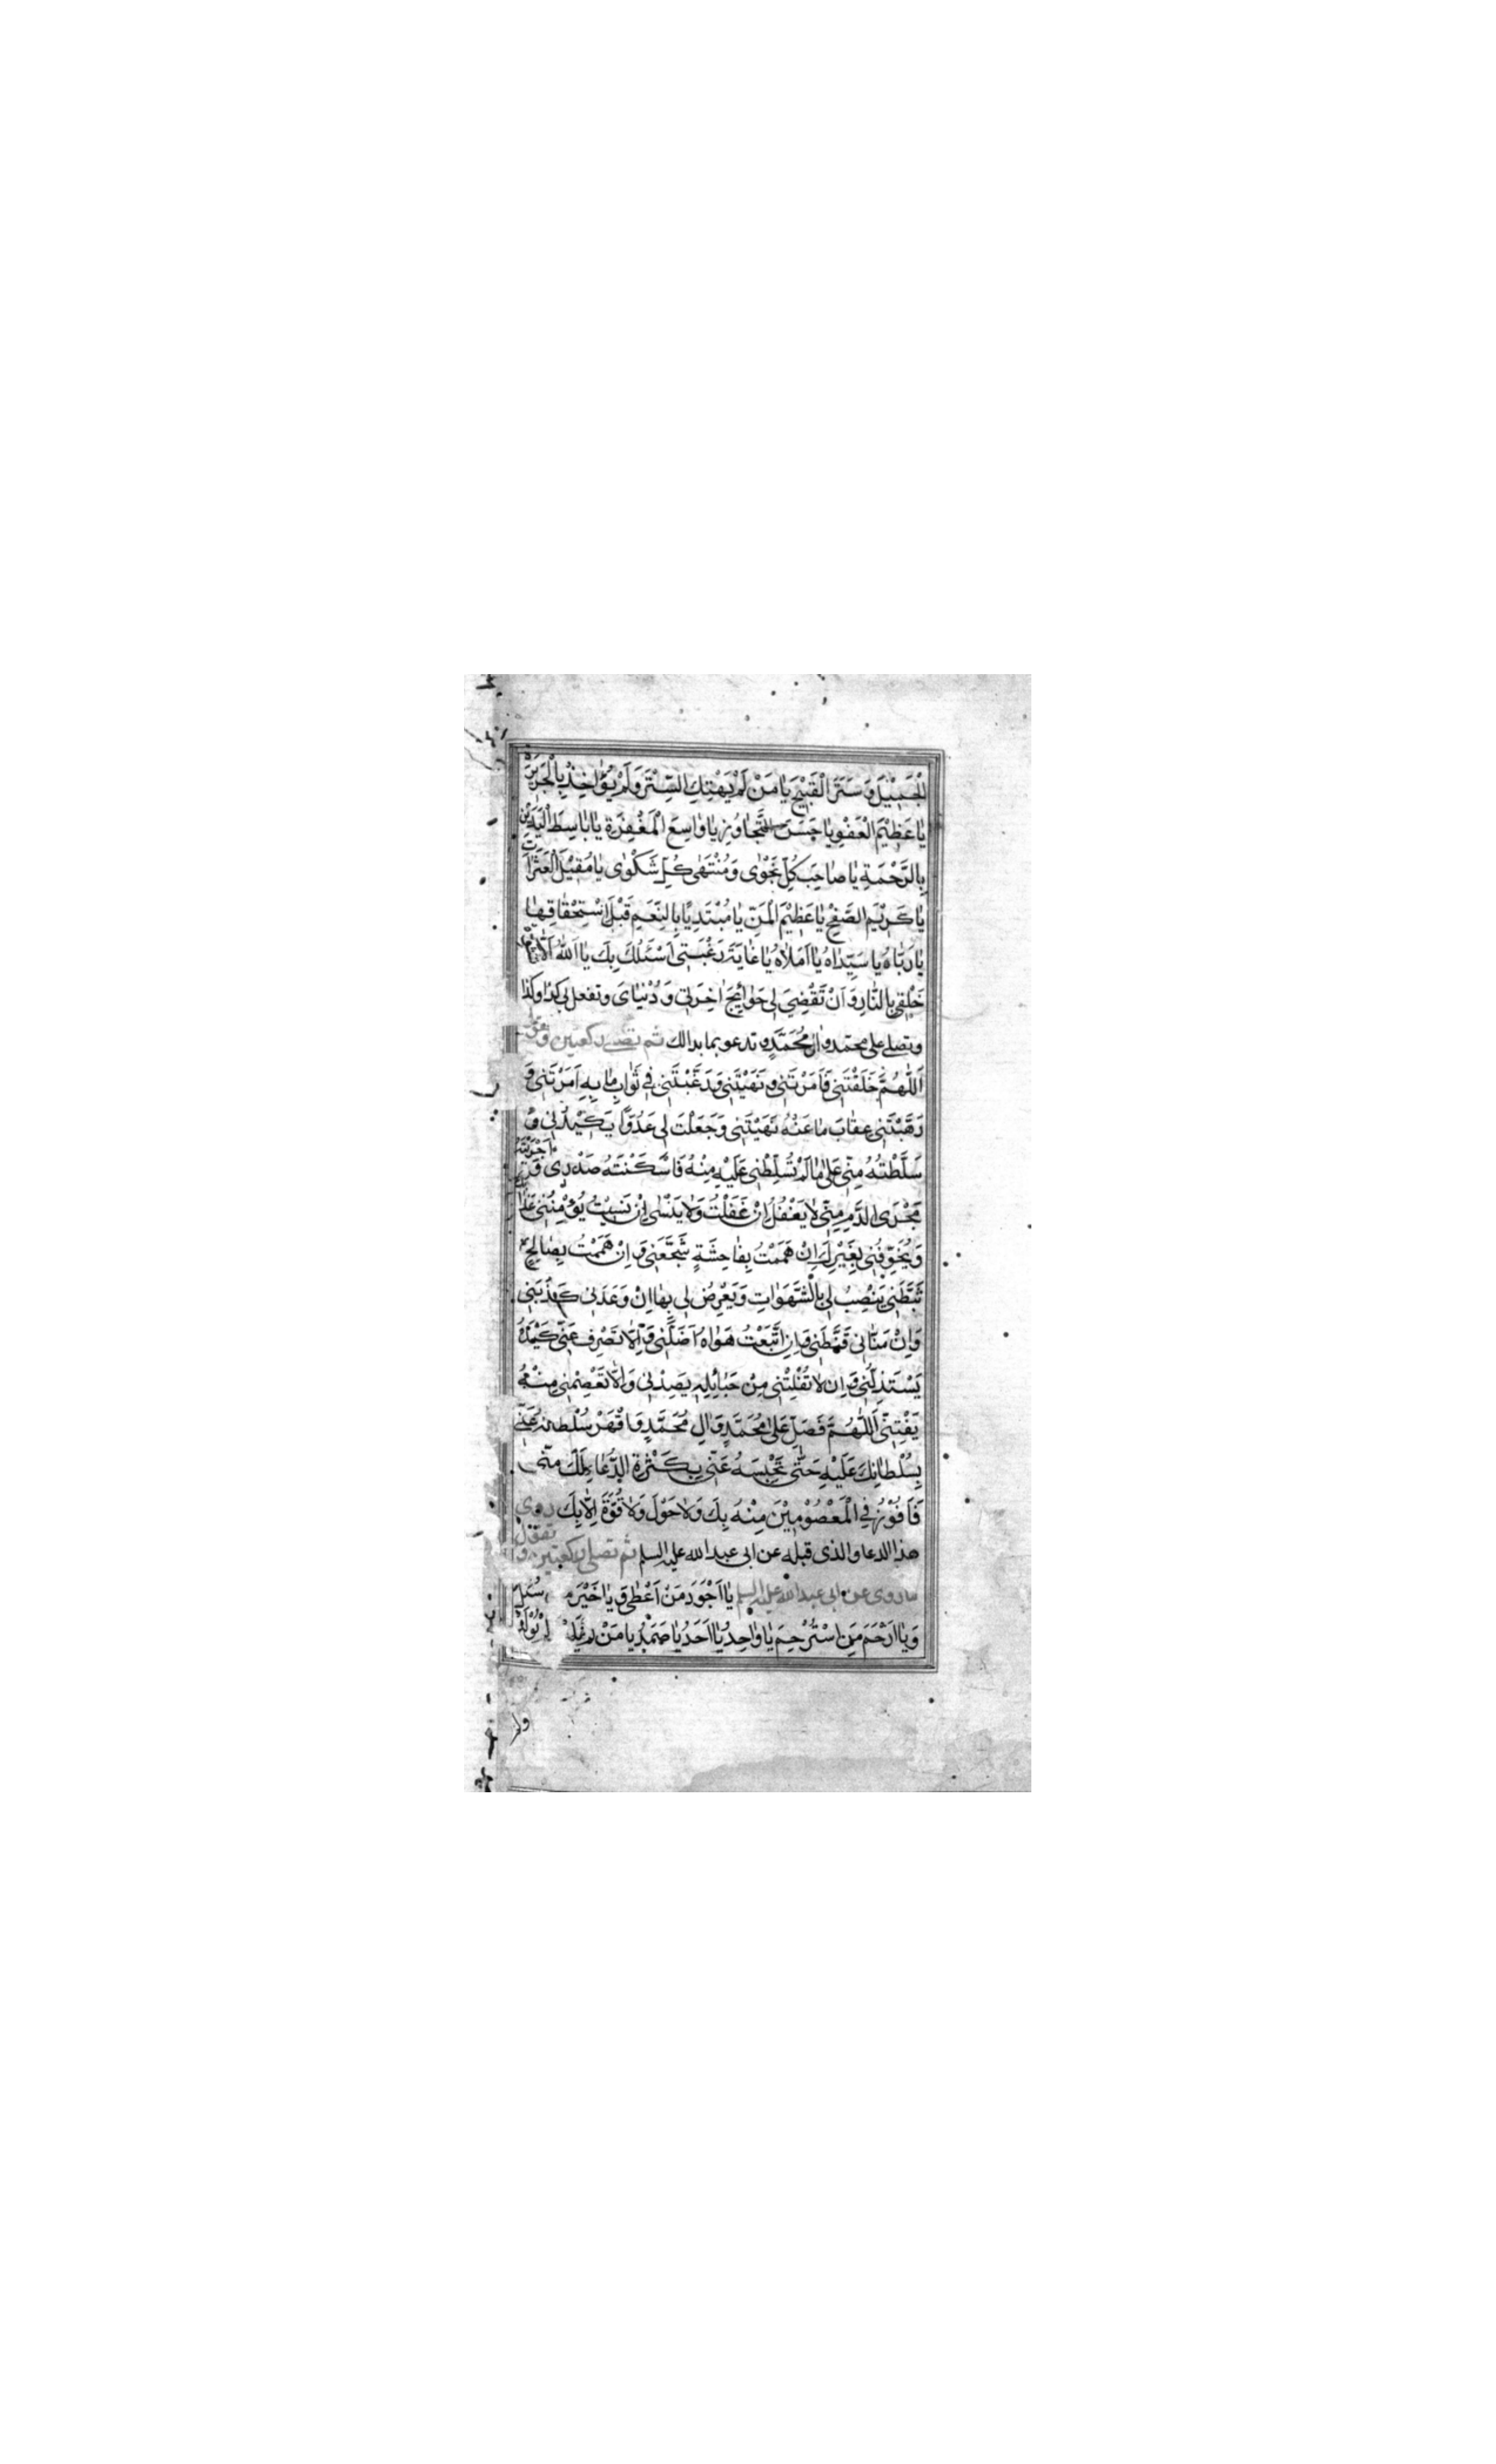 الْجَمِيْلَ وَ سَتَرَ الْقَبِيْحَ يَا مَنْ لَمْ يَهْتِكِ السِّتْرَ وَلَمْ يُؤَاخِذْ بِالْجَرِيْرَةِ
يَا عَظِيْمَ الْعَفْوِ يَا حَسَنَ التَّجَاوُزِ يَا وَاسِعَ الْمَغْفِرَةِ يَا بَاسِطَ الْيَدَيْنِ
بِالرَّحْمَةِ يَا صَاحِبَ كُلِّ نَجْوٰى وَمُنْتَهٰى كُلِّ شَكْوٰى يَا مُقِيْلَ الْعَثَرَاتِ
يَا كَرِيْمَ الصَّفْحِ يَا عَظِيْمَ الْمَنِّ يَا مُبْتَدِيًا بِالنِّعَمِ قَبْلَ اسْتِحْقَاقِهَا
يَا رَبَّاهُ يَا سَيِّدَاهُ يَا اَمَلَاهُ يَا غَايَةَ رَغْبَتِى اَسْئَلُكَ بِكَ يَا اَللّٰهُ
خَلْقِى بِالنَّارِ وَ اَنْ تَقْضِىَ لِى حَوَائِجَ اٰخِرَتِى وَ دُنْيَاىَ وتفعل بى كذا وكذا
وتصلى على محمد واٰل مُحَمَّدٍ وتدعو بما بدالك ثم تصلى ركعتين وتقول
اَللّٰهُمَّ خَلَقْتَنِى فَاَمَرْتَنِى وَ نَهَيْتَنِى وَ رَغَّبْتَنِى فِى ثَوَابِ مَا بِهِ اَمَرْتَنِى وَ
رَهَّبْتَنِى عِقَابَ مَا عَنْهُ نَهَيْتَنِى وَجَعَلْتَ لِى عَدُوًّا يَكِيْدُنِى وَ
سَلَّطْتَهُ مِنِّى عَلٰى مَا لَمْ تُسَلِّطْنِى عَلَيْهِ مِنْهُ فَاَسْكَنْتَهُ صَدْرِى وَ اَجْرَيْتَهُ
مَجْرَى الدَّمِ مِنِّى لَا يَغْفُلُ اِنْ غَفَلْتُ وَلَا يَنْسٰى اِنْ نَسِيْتُ يُؤْمِنُنِى عَذَابَكَ
وَ يُخَوِّفُنِى بِغَيْرِكَ اِنْ هَمَمْتُ بِفَاحِشَةٍ شَجَّعَنِى وَ اِنْ هَمَمْتُ بِصَالِحٍ
ثَبَّطَنِى يَنْصِبُ لِى بِالْشَّهَوَاتِ وَيَعْرِضُ لِى بِهَا اِنْ وَعَدَنِى كَذَبَنِى
وَاِنْ مَنَّانِى قَنَّطَنِى وَ اِنِ اتَّبَعْتُ هَوَاهُ اَضَلَّنِى وَ اِلَّا تَصْرِفْ عَنِّى كَيْدَهُ
يَسْتَذِلَّنِى وَ اِن لَا تُفْلِتْنِى مِنْ حَبَائِلِهِ يَصِدْنِى وَ اِلَّا تَعْصِمْنِى مِنْهُ
يَفْتِنِّى اَللّٰهُمَّ فَصَلِّ عَلٰى مُحَمَّدٍ وَ اٰلِ مُحَمَّدٍ وَ اقْهَرْ سُلْطَانَهُ عَنِّى
بِسُلْطَانِكَ عَلَيْهِ حَتّٰى تَحْبِسَهُ عَنِّى بِكَثْرَةِ الدُّعَاءِ لَكَ مِنِّى
فَاَفُوْزُ فِى الْمَعْصُوْمِيْنَ مِنْهُ بِكَ وَلَا حَوْلَ وَلَا قُوَّةَ اِلَّا بِكَ روى
هذا الدعا والذى قبله عن ابى عبد الله عليه السلم ثم تصلى ركعتين وتقول
ما روى عن ابى عبد الله عليه السلم يَا اَجْوَدَ مَنْ اَعْطٰى وَ يَا خَيْرَ مَنْ سُئِلَ
وَيَا اَرْحَمَ مَنِ اسْتُرْحِمَ يَا وَاحِدُ يَا اَحَدُ يَا صَمَدُ يَا مَنْ لَمْ يَلِدْ وَلَمْ يُوْلَدْ
ولم